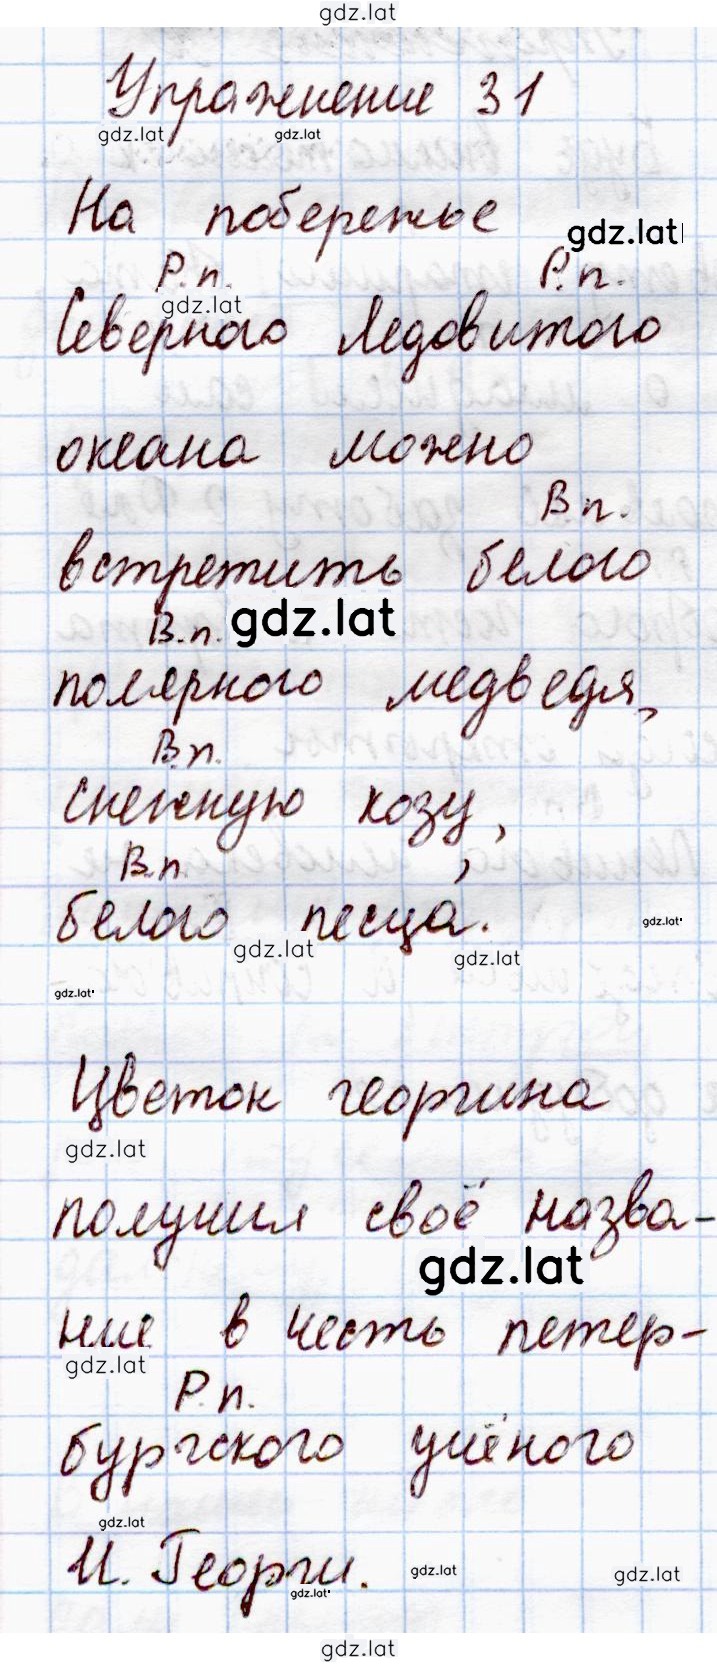 gdz.lat
Упражнение 31
gdz.lat gdz.lat
На побережье
gdz.lat
Р.п. Р.п.
gdz.lat
Северного Ледовитого
океана можно
В п.
встретить белого
В.п. gdz.lat
полярного медведя,
В.п.
снежную козу,
В.п.
белого песца.
gdz.lat
gdz.lat gdz.lat
gdz.lat
Цветок георгина
gdz.lat
получил своё назва-
gdz.lat
ние в честь петер-
gdz.lat
Р.п.
бургского учёного
gdz.lat
И. Георги.
gdz.lat gdz.lat gdz.lat
gdz.lat